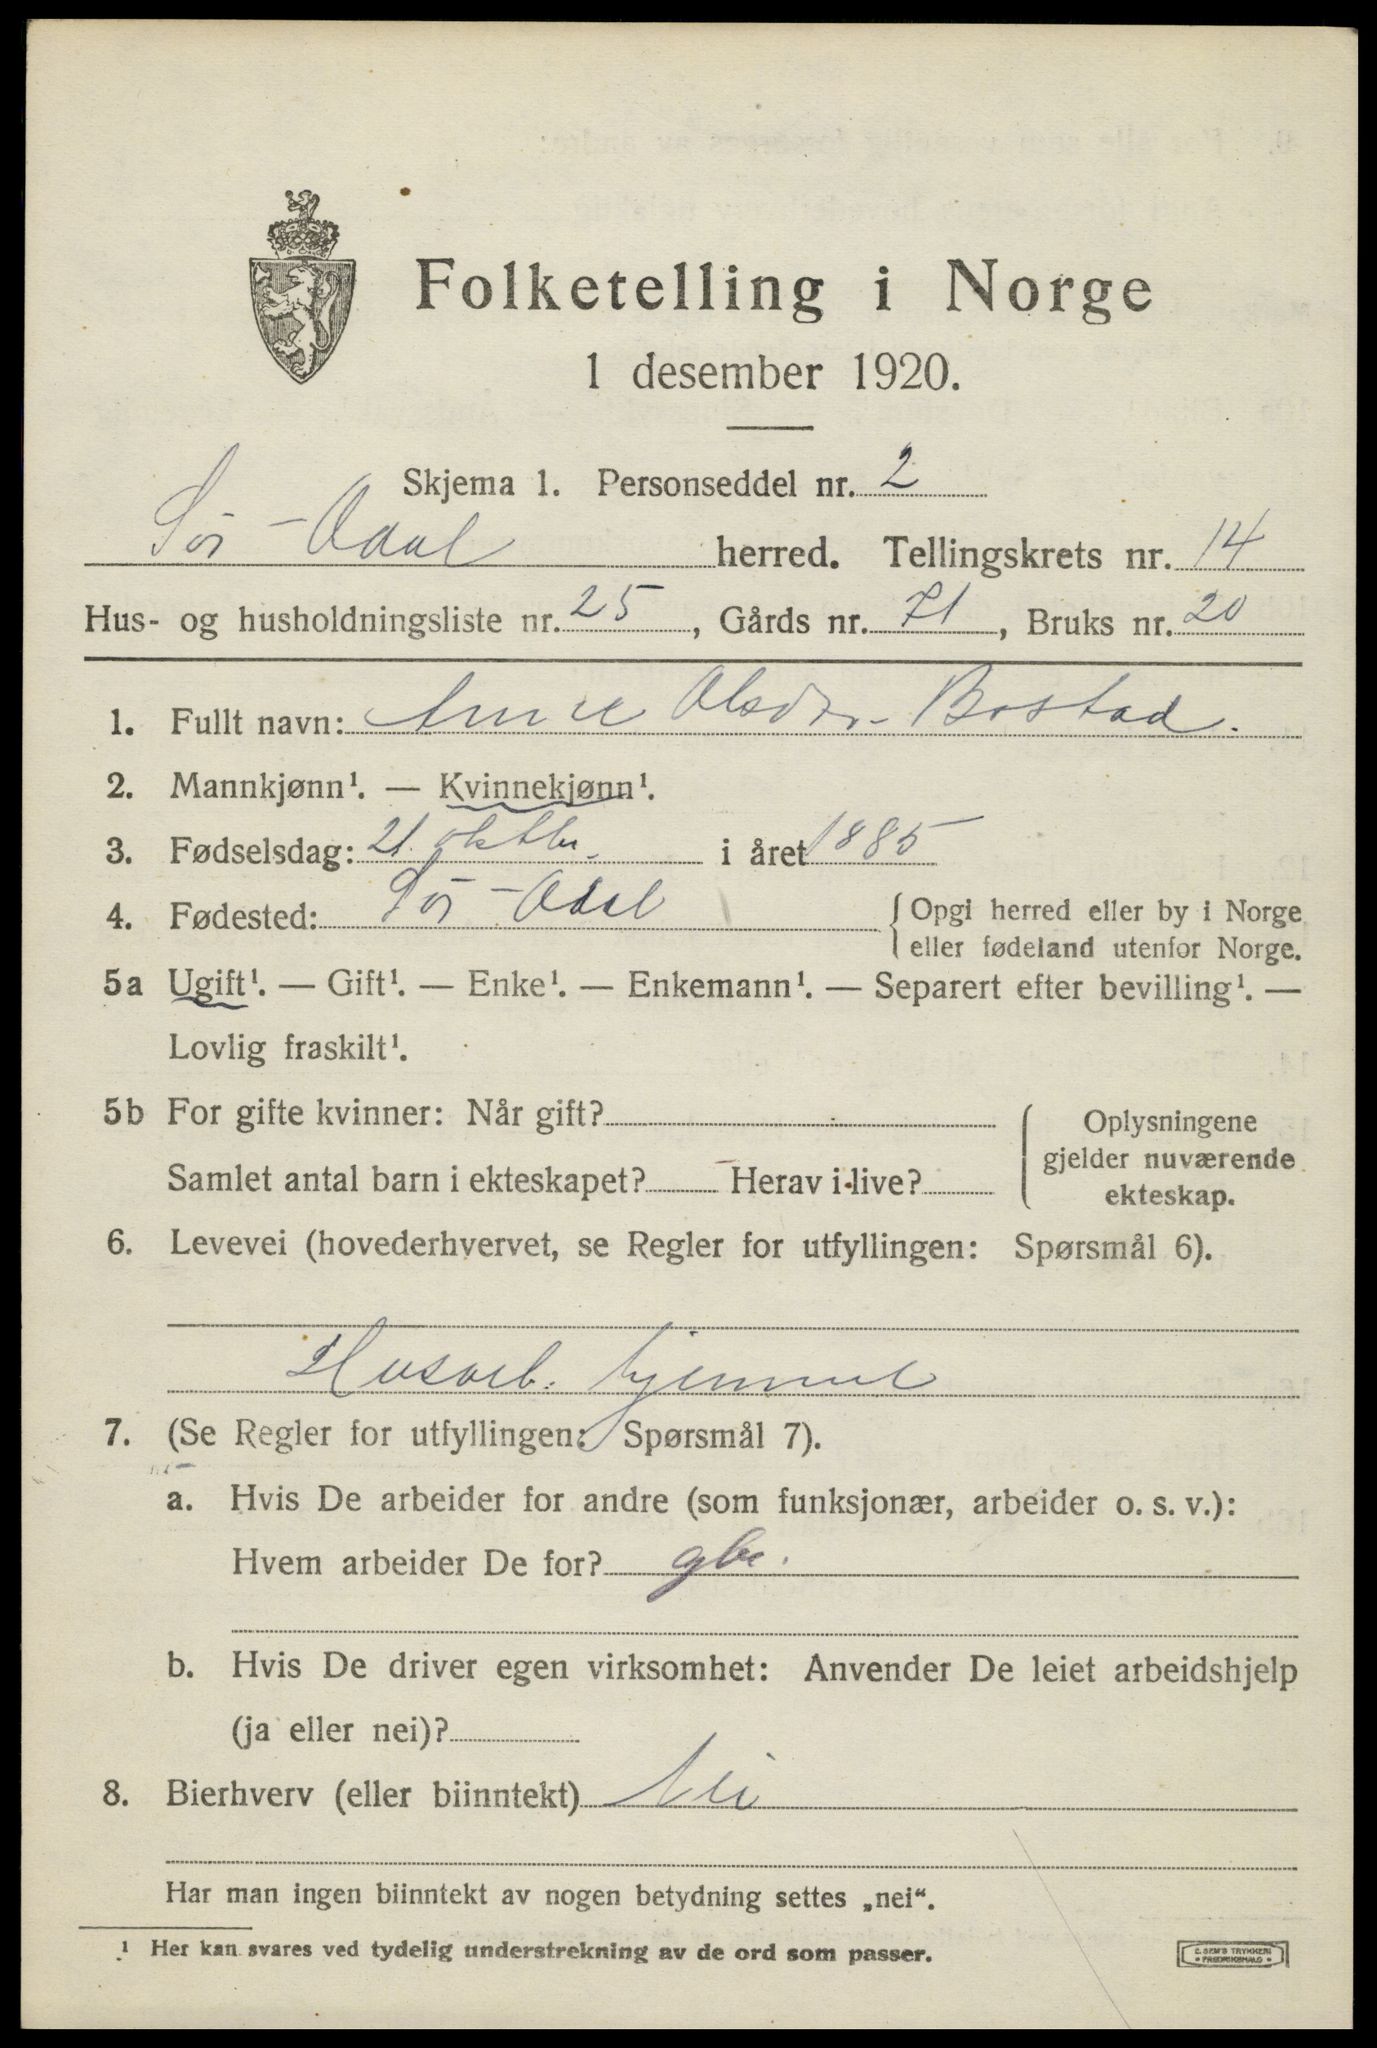 Folketelling i Norge
1 desember 1920.
Skjema 1. Personseddel nr. 2
Sør-Odal herred. Tellingskrets nr. 14
Hus- og husholdningsliste nr. 25, Gårds nr. 71, Bruks nr. 20
1. Fullt navn: Anne Olsdtr. Bostad.
2. Mannkjønn¹. — Kvinnekjønn¹.
3. Fødselsdag: 21. oktbr. i året 1885
4. Fødested: Sør-Odal { Opgi herred eller by i Norge
eller fødeland utenfor Norge.
5a Ugift¹. — Gift¹. — Enke¹. — Enkemann¹. — Separert efter bevilling¹. —
Lovlig fraskilt¹.
5b For gifte kvinner: Når gift? { Oplysningene
gjelder nuværende
Samlet antal barn i ekteskapet? Herav i live? ekteskap.
6. Levevei (hovederhvervet, se Regler for utfyllingen: Spørsmål 6).
Husarb. hjemme
7. (Se Regler for utfyllingen: Spørsmål 7).
a. Hvis De arbeider for andre (som funksjonær, arbeider o. s. v.):
Hvem arbeider De for? gbr.
b. Hvis De driver egen virksomhet: Anvender De leiet arbeidshjelp
(ja eller nei)?
8. Bierhverv (eller biinntekt) Nei
Har man ingen biinntekt av nogen betydning settes „nei“.
¹ Her kan svares ved tydelig understrekning av de ord som passer.
E. SEM'S TRYKKERI
FREDRIKSHALD